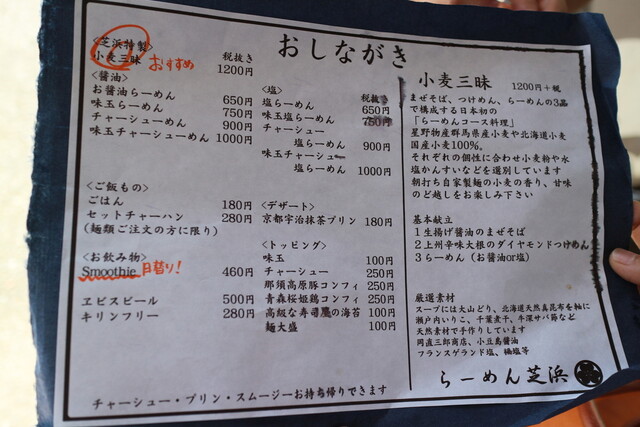 おしながき
<芝浜特製>
小麦三昧 おすすめ
税抜き
1200円
<醤油>
お醤油らーめん 650円
味玉らーめん 750円
チャーシューめん 900円
味玉チャーシューめん 1000円
<塩> 税抜き
塩らーめん 650円
味玉塩らーめん 750円
チャーシュー
塩らーめん 900円
味玉チャーシュー
塩らーめん 1000円
<ご飯もの>
ごはん 180円
セットチャーハン 280円
(麺類ご注文の方に限り)
<デザート>
京都宇治抹茶プリン 180円
<お飲み物>
Smoothie 日替り! 460円
ヱビスビール 500円
キリンフリー 280円
<トッピング>
味玉 100円
チャーシュー 250円
那須高原豚コンフィ 250円
青森桜姫鶏コンフィ 250円
高級な寿司屋の海苔 100円
麺大盛 100円
チャーシュー・プリン・スムージーお持ち帰りできます
小麦三昧 1200円+税
まぜそば、つけめん、らーめんの3品
で構成する日本初の
「らーめんコース料理」
星野物産群馬県産小麦や北海道小麦
国産小麦100%。
それぞれの個性に合わせ小麦粉や水
塩かんすいなどを選別しています
朝打ち自家製麺の小麦の香り、甘味
のど越しをお楽しみ下さい
基本献立
1 生揚げ醤油のまぜそば
2 上州辛味大根のダイヤモンドつけめん
3 らーめん(お醤油or塩)
厳選素材
スープには大山どり、北海道天然真昆布を軸に
瀬戸内いりこ、干葉煮干、牛深サバ節など
天然素材で手作りしています
岡直三郎商店、小豆島醤油
フランスゲランド塩、藻塩等
らーめん芝浜